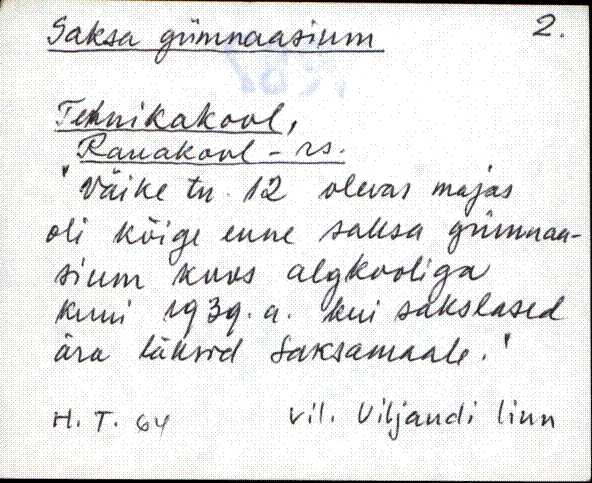 Saksa gümnaasium 2.
Tehnikakool,
Rauakool - rs.
"Väike tn. 12 olevas majas
oli kõige enne saksa gümnaa-
sium koos algkooliga
kuni 1939. a. kui sakslased
ära läksid Saksamaale."
H. T. 64 Vil. Viljandi linn